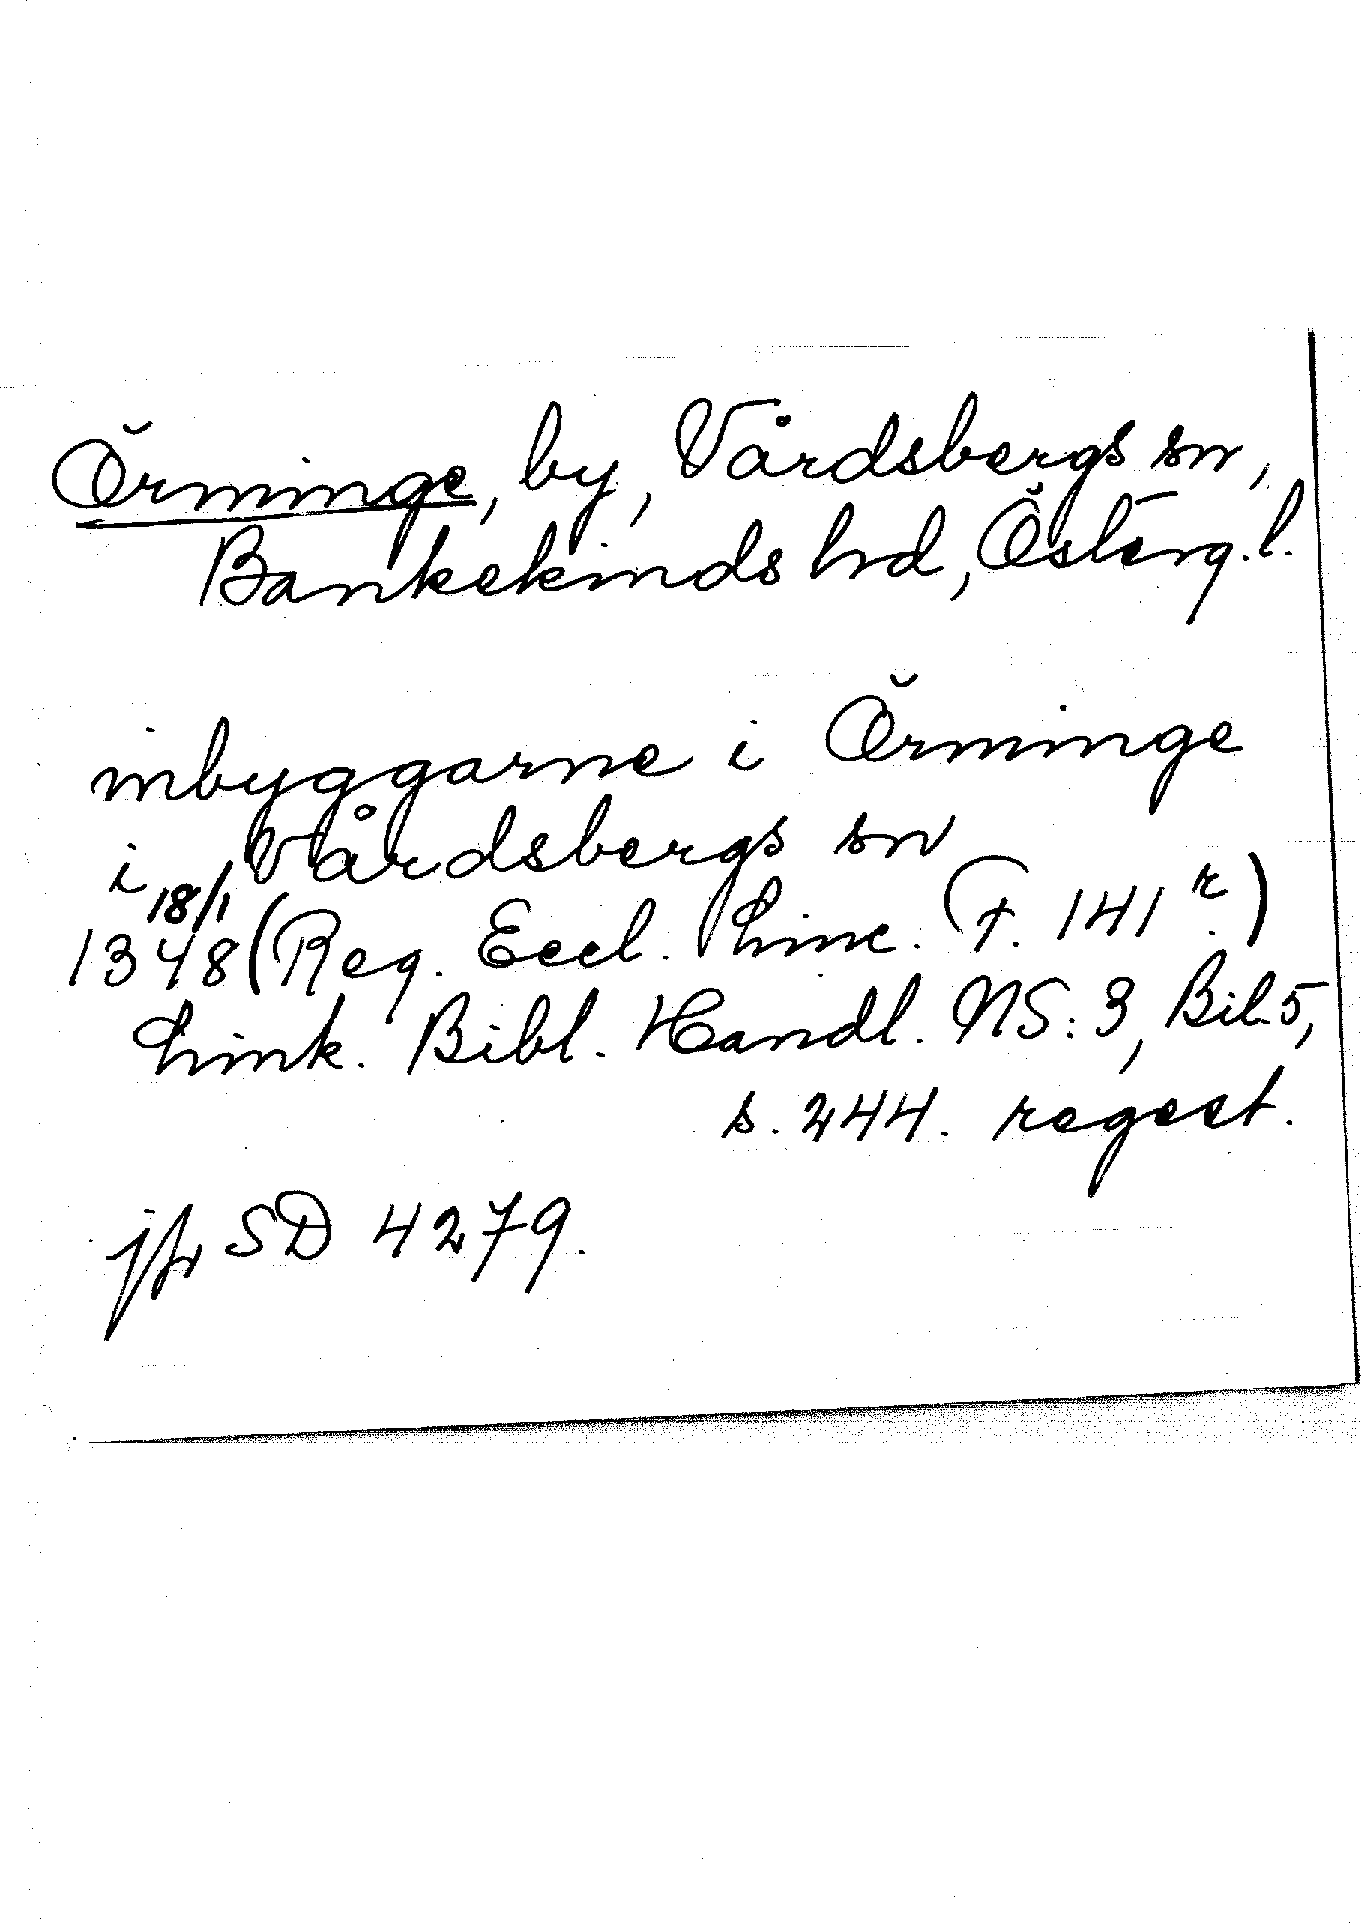 Örminge, by, Vårdsbergs sn,
Bankekinds hrd, Österg.l.
inbyggarne i Örminge
i Vårdsbergs sn
18/1
1348 (Reg. Eccl. Linc. (F. 141 r.)
Link. Bibl. Handl. NS: 3, Bil. 5,
s. 244. regest.
jfr SD 4279.